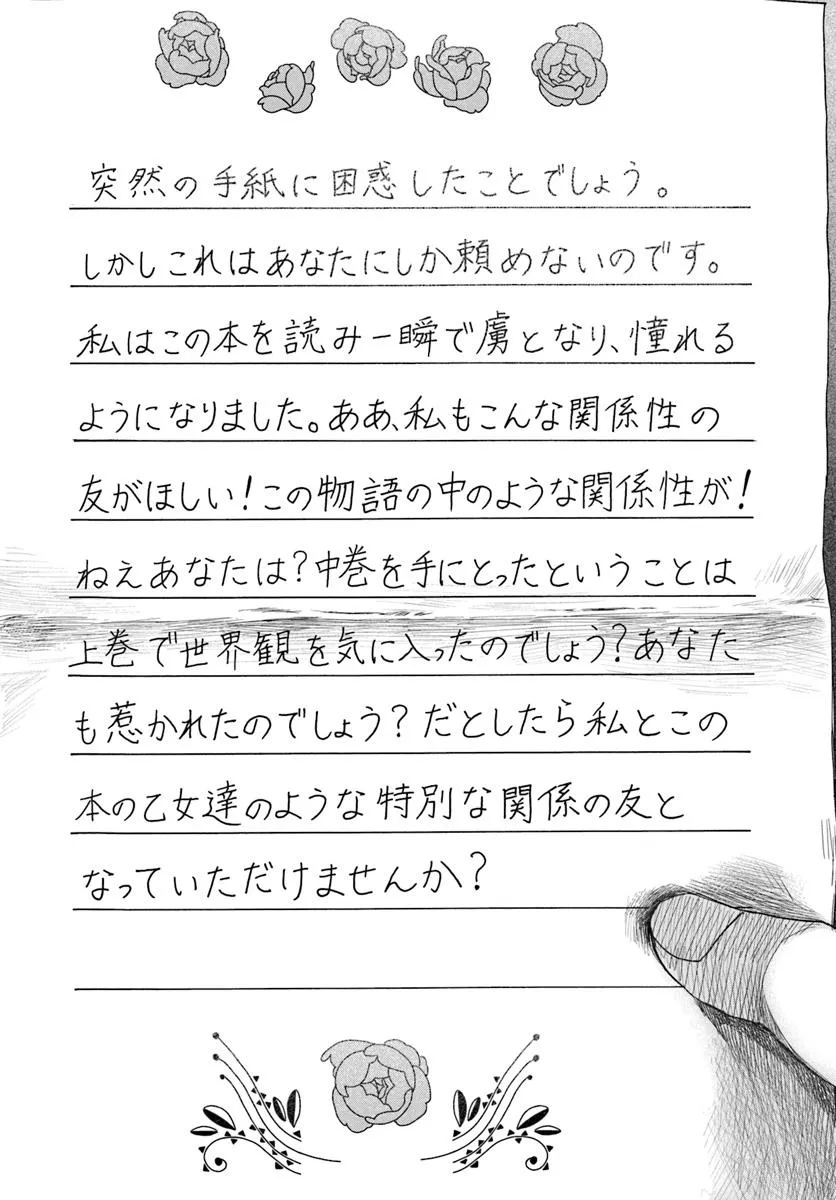 突然の手紙に困惑したことでしょう。
しかしこれはあなたにしか頼めないのです。
私はこの本を読み一瞬で虜となり、憧れる
ようになりました。ああ、私もこんな関係性の
友がほしい！この物語の中のような関係性が！
ねえあなたは？中巻を手にとったということは
上巻で世界観を気に入ったのでしょう？あなた
も惹かれたのでしょう？だとしたら私とこの
本の乙女達のような特別な関係の友と
なっていただけませんか？